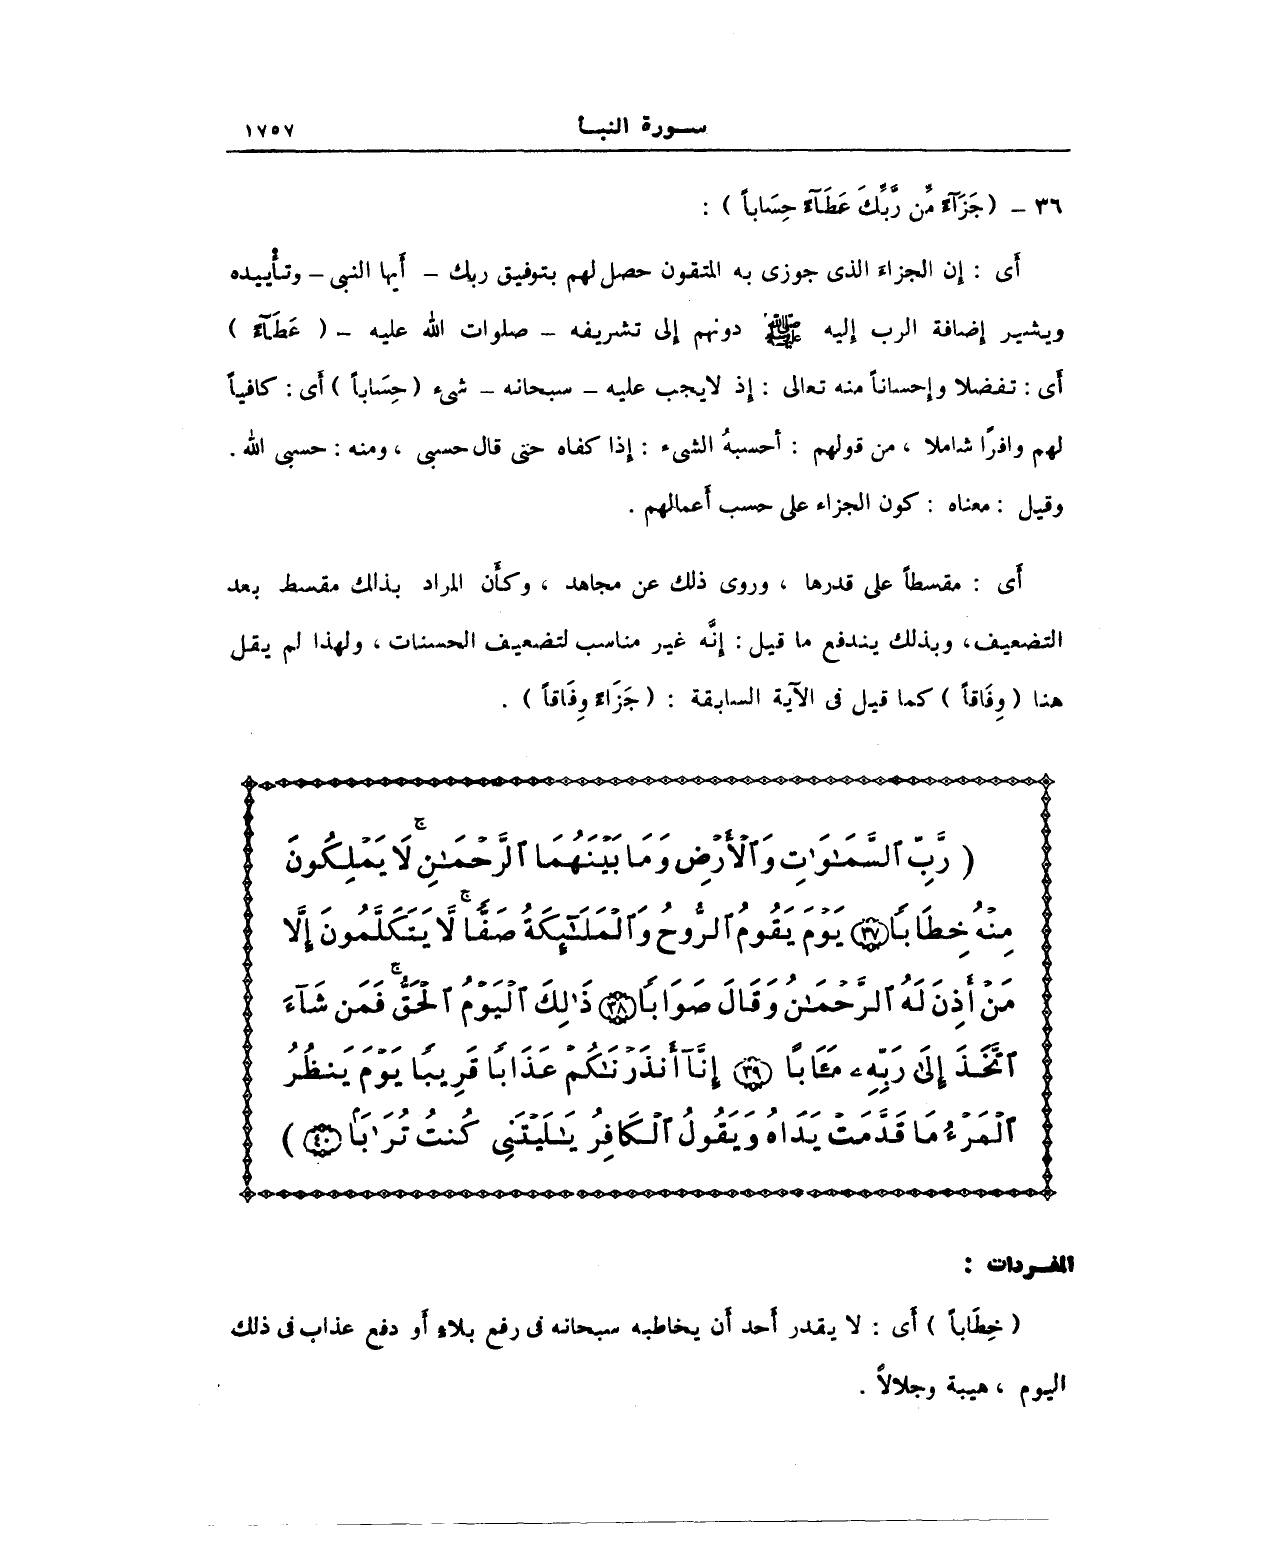 سورة النبأ ١٧٥٧
٣٦ – (جَزَآءً مِّن رَّبِّكَ عَطَآءً حِسَاباً ) :
أَى : إن الجزاء الذى جوزى به المتقون حصل لهم بتوفيق ربك – أَيها النبى – وتأْييده
ويشير إضافة الرب إليه ﷺ دونهم إلى تشريفه – صلوات الله عليه – ( عَطَآءً )
أَى : تفضلا وإحساناً منه تعالى : إذ لايجب عليه – سبحانه – شىء (حِسَاباً ) أَى : كافياً
لهم وافرًا شاملا ، من قولهم : أحسبهُ الشىء : إذا كفاه حتى قال حسبى ، ومنه : حسبى الله .
وقيل : معناه : كون الجزاء على حسب أَعمالهم .
أَى : مقسطاً على قدرها ، وروى ذلك عن مجاهد ، وكأَن المراد بذالك مقسط بعد
التضعيف، وبذلك يندفع ما قيل : إنَّه غير مناسب لتضعيف الحسنات ، ولهذا لم يقل
هنا ( وِفَاقاً ) كما قيل فى الآية السابقة : ( جَزَاءً وِفَاقاً ) .
( رَّبِّ ٱلسَّمَـٰوَٰتِ وَٱلْأَرْضِ وَمَا بَيْنَهُمَا ٱلرَّحْمَـٰنِ ۚ لَا يَمْلِكُونَ
مِنْهُ خِطَابًا ﴿٣٧﴾ يَوْمَ يَقُومُ ٱلرُّوحُ وَٱلْمَلَـٰٓئِكَةُ صَفًّا ۚ لَّا يَتَكَلَّمُونَ إِلَّا
مَنْ أَذِنَ لَهُ ٱلرَّحْمَـٰنُ وَقَالَ صَوَابًا ﴿٣٨﴾ ذَٰلِكَ ٱلْيَوْمُ ٱلْحَقُّ ۚ فَمَن شَآءَ
ٱتَّخَذَ إِلَىٰ رَبِّهِۦ مَـَٔابًا ﴿٣٩﴾ إِنَّآ أَنذَرْنَـٰكُمْ عَذَابًا قَرِيبًا يَوْمَ يَنظُرُ
ٱلْمَرْءُ مَا قَدَّمَتْ يَدَاهُ وَيَقُولُ ٱلْكَافِرُ يَـٰلَيْتَنِى كُنتُ تُرَٰبًا ﴿٤٠﴾ )
المفردات :
( خِطَاباً ) أَى : لا يقدر أَحد أَن يخاطبه سبحانه فى رفع بلاءٍ أَو دفع عذاب فى ذلك
اليوم ، هيبة وجلالاً .